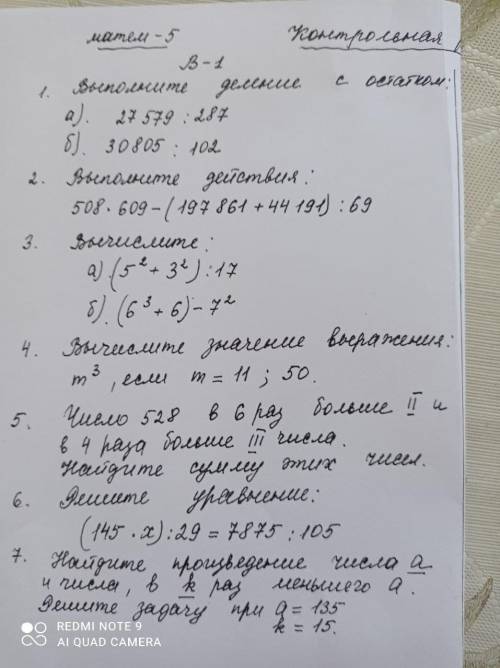 матем-5 Контрольная
В-1
1. Выполните деление с остатком:
а). 27579 : 287
б). 30805 : 102
2. Выполните действия:
508·609-(197861+44191):69
3. Вычислите:
а) (5²+3²):17
б). (6³+6)-7²
4. Вычислите значение выражения:
m³, если m = 11; 50.
5. Число 528 в 6 раз больше II и
в 4 раза больше III числа.
Найдите сумму этих чисел.
6. Решите уравнение:
(145·x):29=7875:105
7. Найдите произведение числа a
и числа, в k раз меньшего a.
Решите задачу при a = 135
k = 15.
REDMI NOTE 9
AI QUAD CAMERA